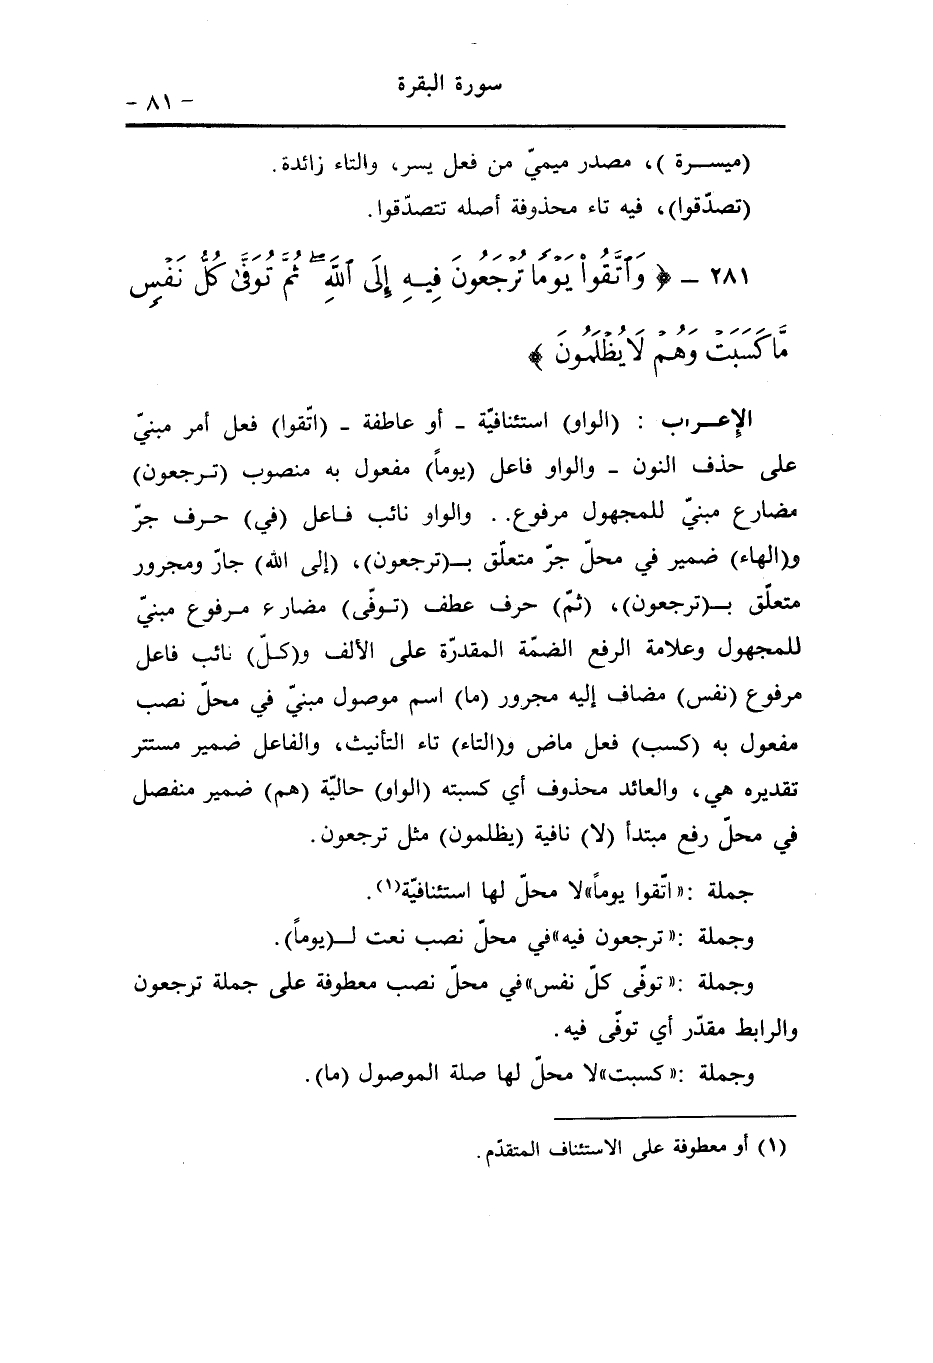 سورة البقرة
- ٨١ -
(ميسرة )، مصدر ميميّ من فعل يسر، والتاء زائدة.
(تصدّقوا)، فيه تاء محذوفة أصله تتصدّقوا.
٢٨١ ـ ﴿ وَٱتَّقُوا۟ يَوْمًا تُرْجَعُونَ فِيهِ إِلَى ٱللَّهِ ۖ ثُمَّ تُوَفَّىٰ كُلُّ نَفْسٍ
مَّا كَسَبَتْ وَهُمْ لَا يُظْلَمُونَ ﴾
الإعراب : (الواو) استئنافيّة ـ أو عاطفة ـ (اتّقوا) فعل أمر مبنيّ
على حذف النون ـ والواو فاعل (يوماً) مفعول به منصوب (ترجعون)
مضارع مبنيّ للمجهول مرفوع.. والواو نائب فاعل (في) حرف جرّ
و(الهاء) ضمير في محلّ جرّ متعلّق بـ(ترجعون)، (إلى الله) جارّ ومجرور
متعلّق بـ(ترجعون)، (ثمّ) حرف عطف (توفّى) مضارع مرفوع مبنيّ
للمجهول وعلامة الرفع الضمّة المقدرّة على الألف و(كلّ) نائب فاعل
مرفوع (نفس) مضاف إليه مجرور (ما) اسم موصول مبنيّ في محلّ نصب
مفعول به (كسب) فعل ماض و(التاء) تاء التأنيث، والفاعل ضمير مستتر
تقديره هي، والعائد محذوف أي كسبته (الواو) حاليّة (هم) ضمير منفصل
في محلّ رفع مبتدأ (لا) نافية (يظلمون) مثل ترجعون.
جملة :«اتّقوا يوماً»لا محلّ لها استئنافيّة(١).
وجملة :«ترجعون فيه»في محلّ نصب نعت لـ(يوماً).
وجملة :«توفّى كلّ نفس»في محلّ نصب معطوفة على جملة ترجعون
والرابط مقدّر أي توفّى فيه.
وجملة :«كسبت»لا محلّ لها صلة الموصول (ما).
(١) أو معطوفة على الاستئناف المتقدّم.